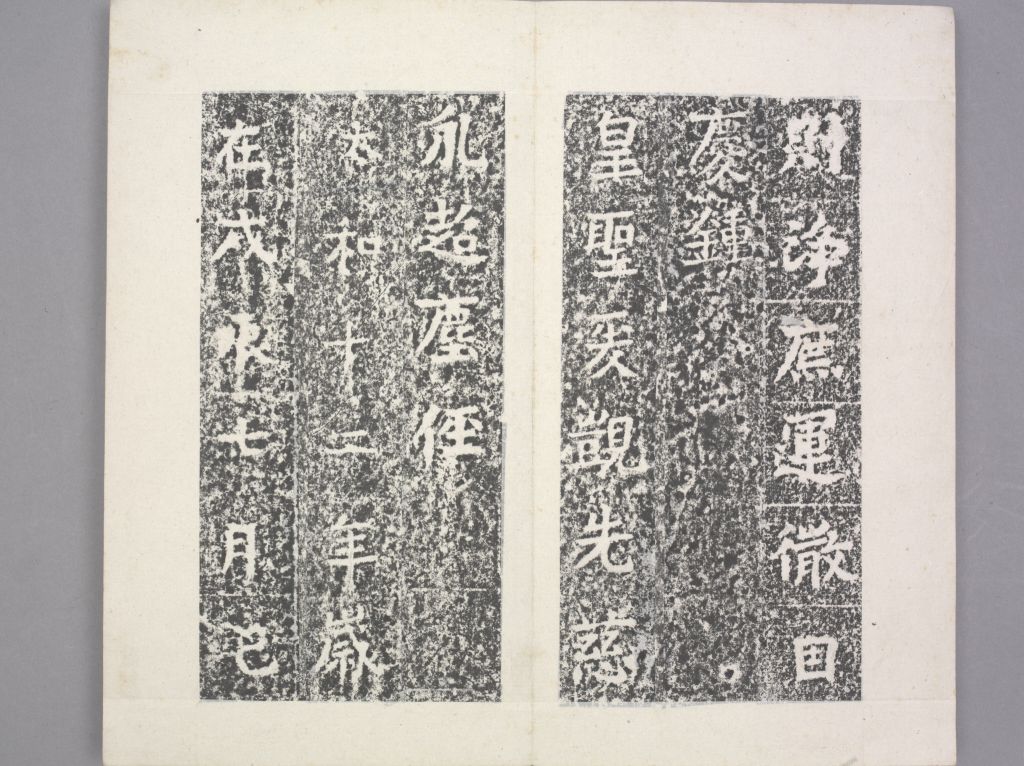 則淨庶運微囙
慶鍾
皇聖爰覬先慈
永超塵俓
太和十二年歲
在戊辰七月己